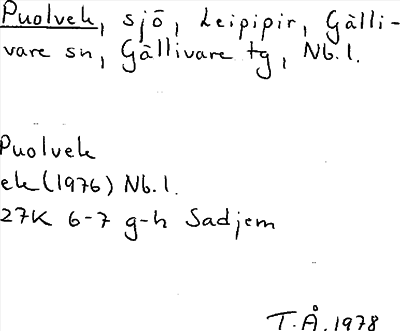 Puolvek, sjö, Leipipir, Gälli-
vare sn, Gällivare tg, Nb.l.
Puolvek
ek (1976) Nb.l.
27K 6-7 g-h Sadjem
T.Å. 1978